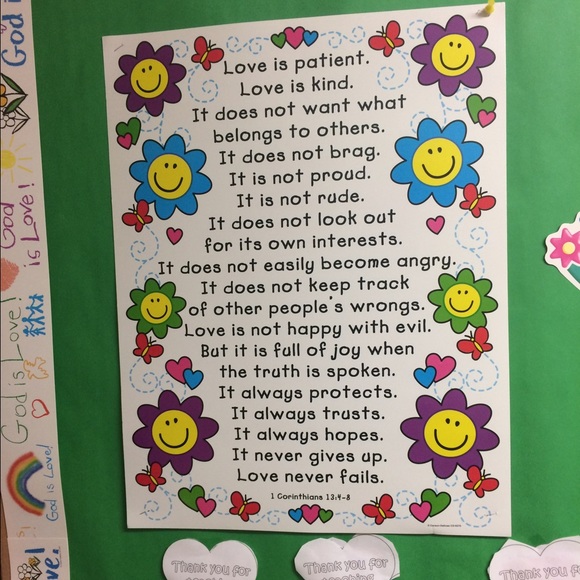 Love is patient.
Love is kind.
It does not want what
belongs to others.
It does not brag.
It is not proud.
It is not rude.
It does not look out
for its own interests.
It does not easily become angry.
It does not keep track
of other people's wrongs.
Love is not happy with evil.
But it is full of joy when
the truth is spoken.
It always protects.
It always trusts.
It always hopes.
It never gives up.
Love never fails.
1 Corinthians 13:4-8
God i
God is Love!
God is Love!
God is Love!
ve!
Thank you for
Thank you for
Thank you f